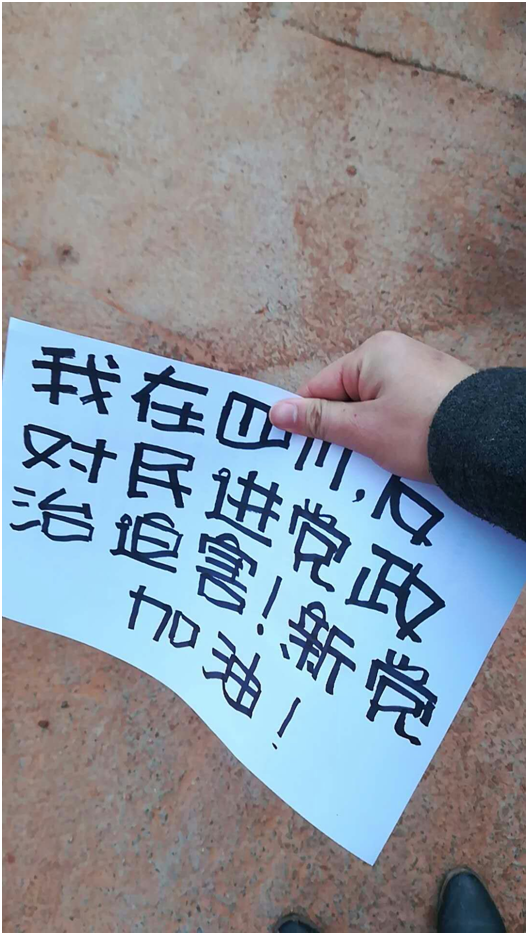 我在四川,反
对民进党政
治迫害!新党
加油!